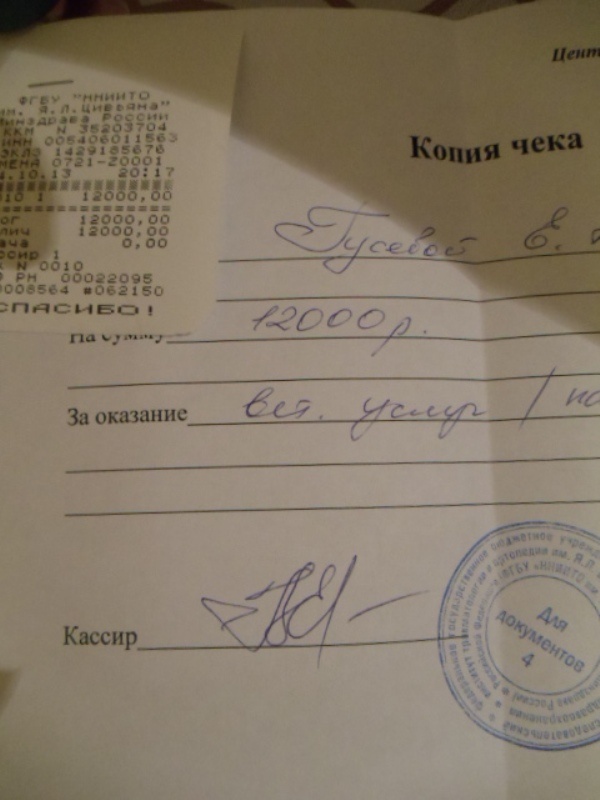 ФГБУ "ННИИТО
им. Я.Л.Цивьяна"
Минздрава России
ККМ N 35203704
ИНН 005406011563
ЭКЛЗ 1429185676
СМЕНА 0721-Z0001
4.10.13 20:17
010 1 12000,00
ог 12000,00
лич 12000,00
ача 0,00
ссир 1
N 0010
РМ 00022095
0008564 #062150
СПАСИБО!
Цент
Копия чека
Гусевой Е.
На сумму 12000р.
За оказание вет. услуг /
Кассир
Для
документов
4